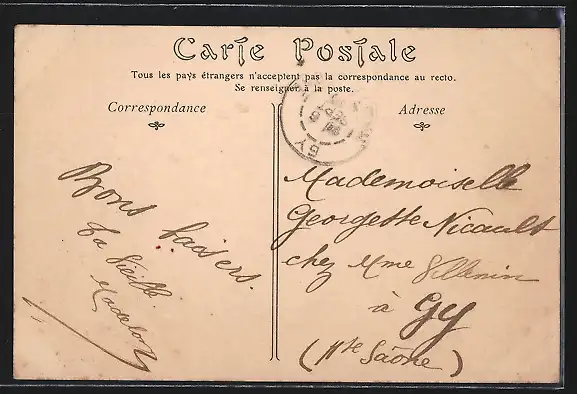 Carte Postale
Tous les pays étrangers n'acceptent pas la correspondance au recto.
Se renseigner à la poste.
Correspondance
Adresse
GY
Bons baisers.
Ta Vieille
Madelon
Mademoiselle
Georgette Nicault
chez Mme
à Gy
(Hte Saône)